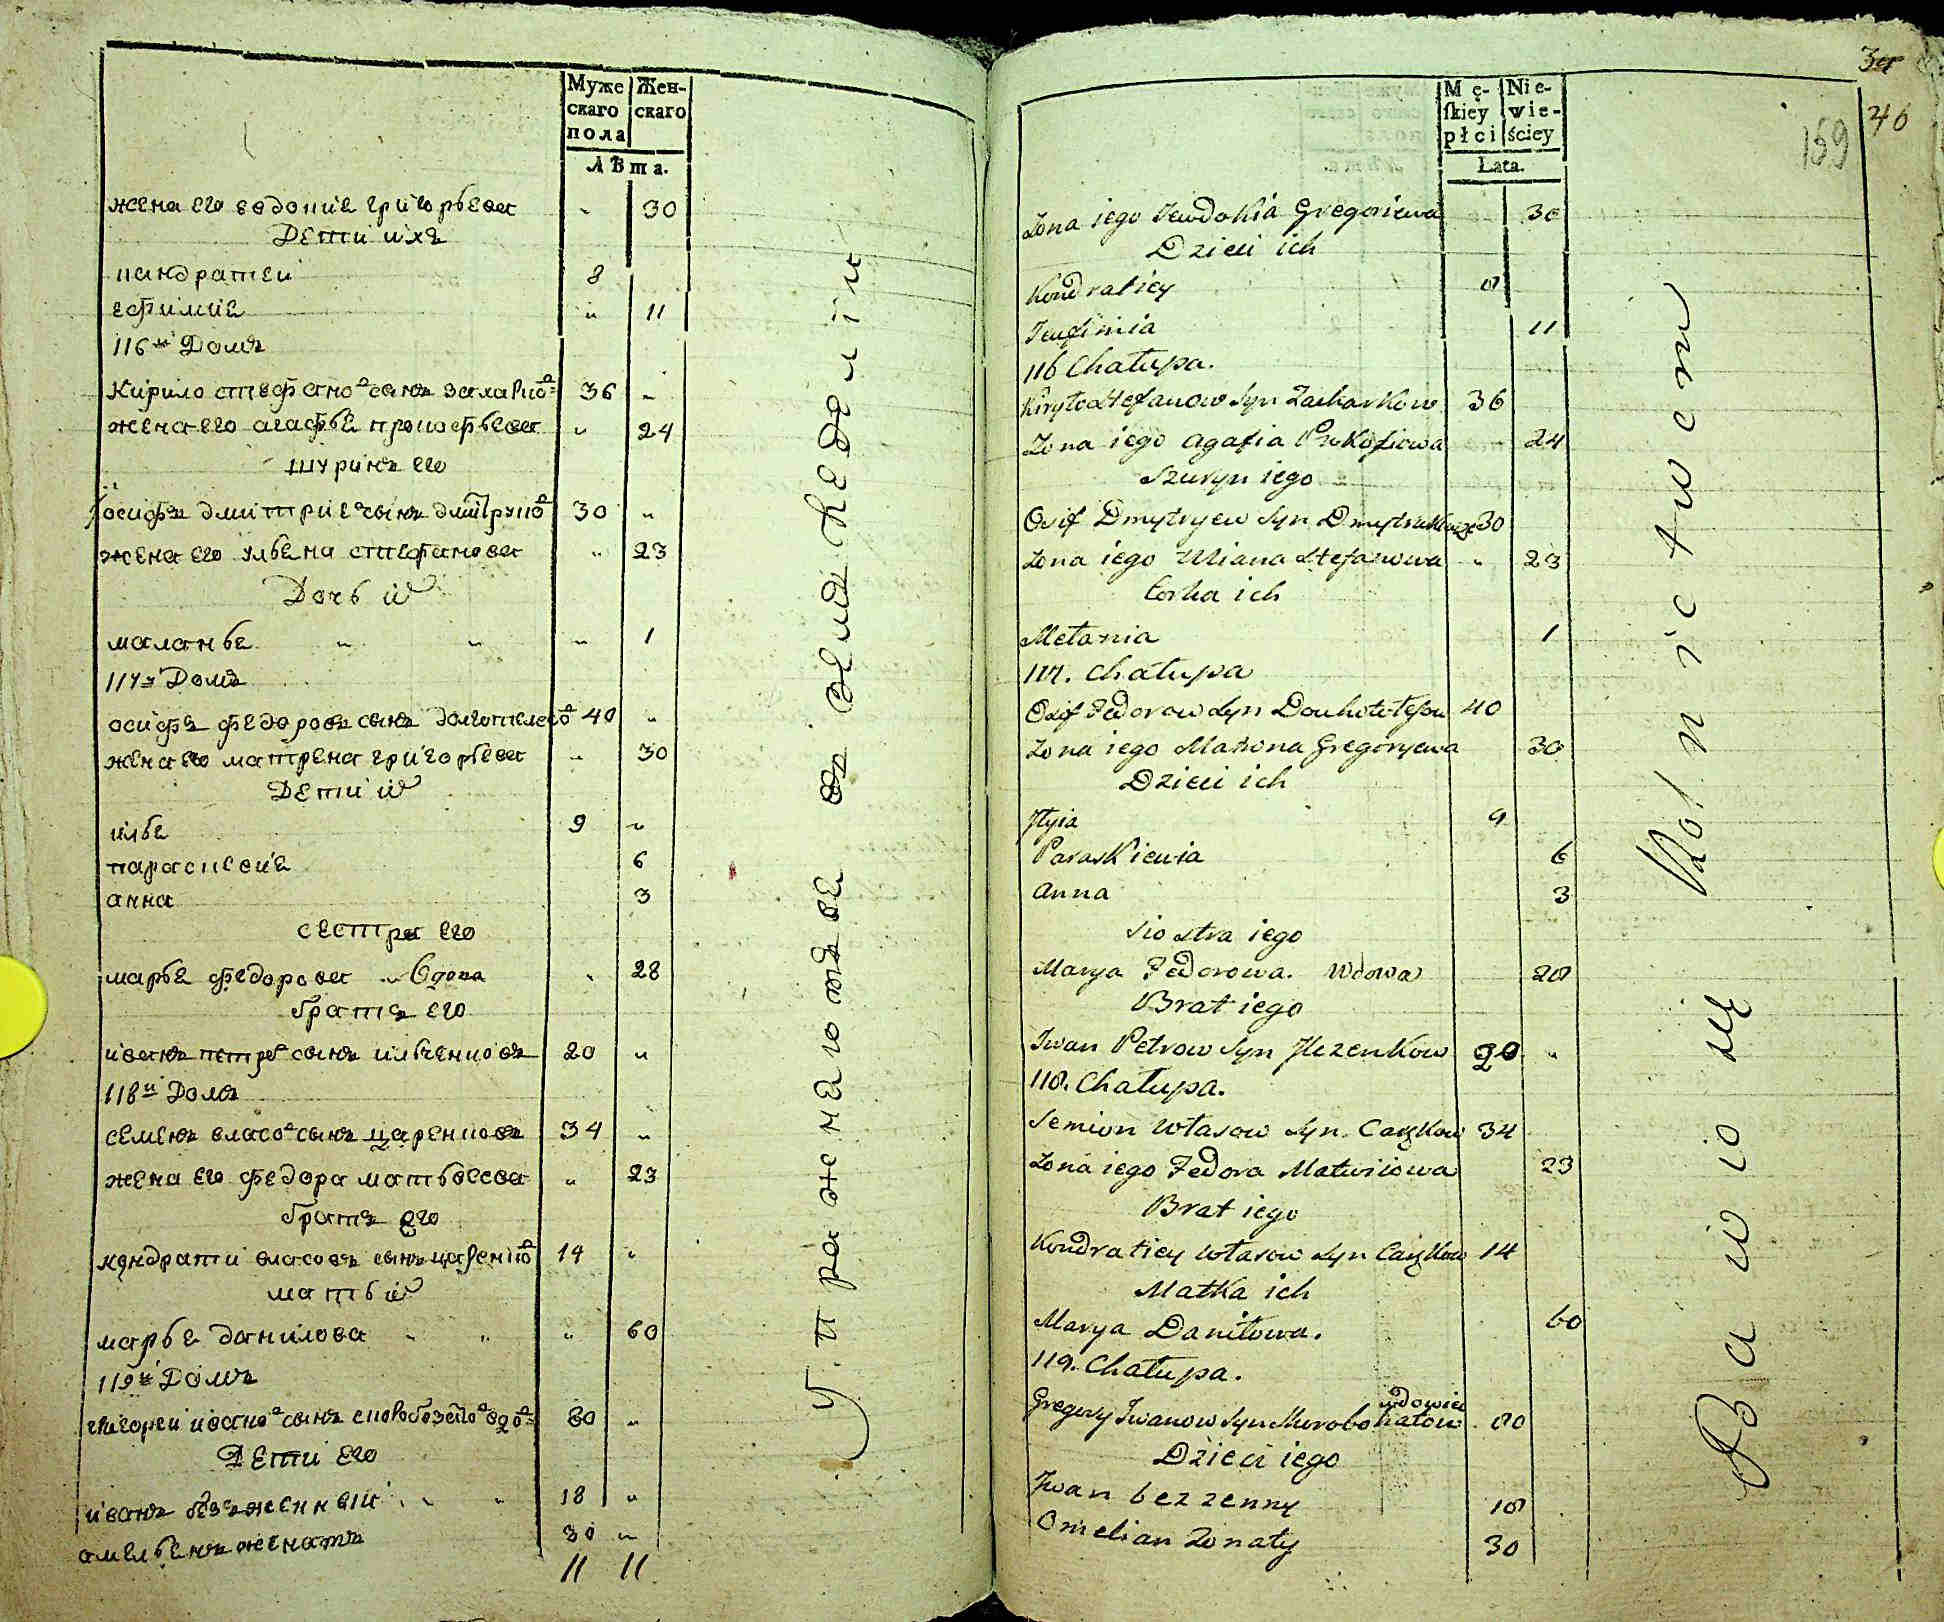 Муже
скаго
пола
Жен-
скаго
Лѣта.
жена его евдокия григорьева " 30
Дети ихъ
кандратей 8
ефимия " 11
116й Домъ
Кирило стефановъ сынъ захарков 36 "
жена его агафья прокофьева " 24
шуринъ его
иосифъ дмитриевъ сынъ дмитруков 30 "
жена его ульяна стефанова " 23
Дочь их
маланья " " " 1
117й Домъ
осифъ федоровъ сынъ долготелесов 40 "
жена его матрена григорьева " 30
Дети их
илья 9 "
параскевия 6
анна 3
сестра его
марья федорова " вдова " 28
братъ его
иванъ петров сынъ ильченковъ 20 "
118й Домъ
семенъ власов сынъ царенковъ 34 "
жена его федора матвеева " 23
братъ его
кондрати власовъ сынъ царенков 14 "
мать их
марья данилова " " " 60
119й Домъ
григорей иванов сынъ вдов 60 "
Дети его
иванъ безженный " " 18 "
амельянъ женатъ 30 "
11 11
Упражняютъся въ земледелии
39
46
159
Mę-
ſkiey
płci
Nie-
wie-
ściey
Lata.
Zona iego Jewdokia Gregoriewa 30
Dzieci ich
Kondratiey 8
Jeufimia 11
116 Chałupa.
Kiryło Stefanow Syn Zacharkow 36
Zona iego Agafia Prokofiowa 24
Szuryn iego
Osif Dmytryew Syn Dmytrukow 30
Zona iego Uliana Stefanowa " 23
Corka ich
Mełania 1
117. Chałupa
Osif Fedorow Syn Douhotelesow 40
Zona iego Matrona Gregoryewa 30
Dzieci ich
Ilyia 9
Paraskiewia 6
Anna 3
Siostra iego
Marya Fedorowa. Wdowa 28
Brat iego
Iwan Petrow Syn Ilczenkow 20 "
118. Chałupa.
Semion Własow Syn Carzkow 34
Zona iego Fedora Matwiiowa 23
Brat iego
Kondratiey Własow Syn Carzkow 14
Matka ich
Marya Daniłowa. 60
119. Chałupa.
wdowiec
Gregory Iwanow Syn 80
Dzieci iego
Iwan bezzenny 18
Omelian Zonaty 30
Bawio się Rolnictwem